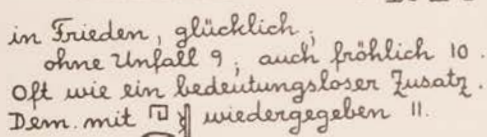 in Frieden, glücklich;
ohne Unfall 9; auch fröhlich 10.
Oft wie ein bedeutungsloser Zusatz.
Dem. mit 𓉔𓇋 wiedergegeben 11.